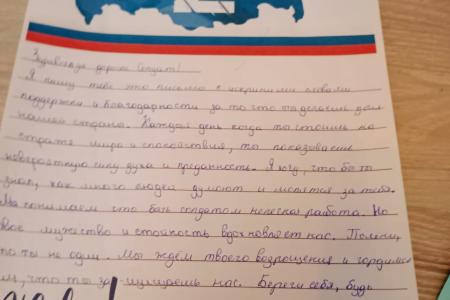 Здравствуй дорогой Солдат!
Я пишу тебе это письмо с искринними словами
поддержки и благодарности за то что ты делаешь для
нашей страны. Каждый день когда ты стоишь на
страже мира и спокойствия, ты показываешь
невероятную силу духа и преданность. Я хочу, что бы ты
знал, как много людей думают и молятся за тебя.
Мы понимаем что быть солдатом нелегкая работа. Но
твоё мужество и стойкость вдохновляет нас. Помни,
что ты не один. Мы ждём твоего возрощения и гордимся
тем, что ты защищаешь нас. Береги себя, будь